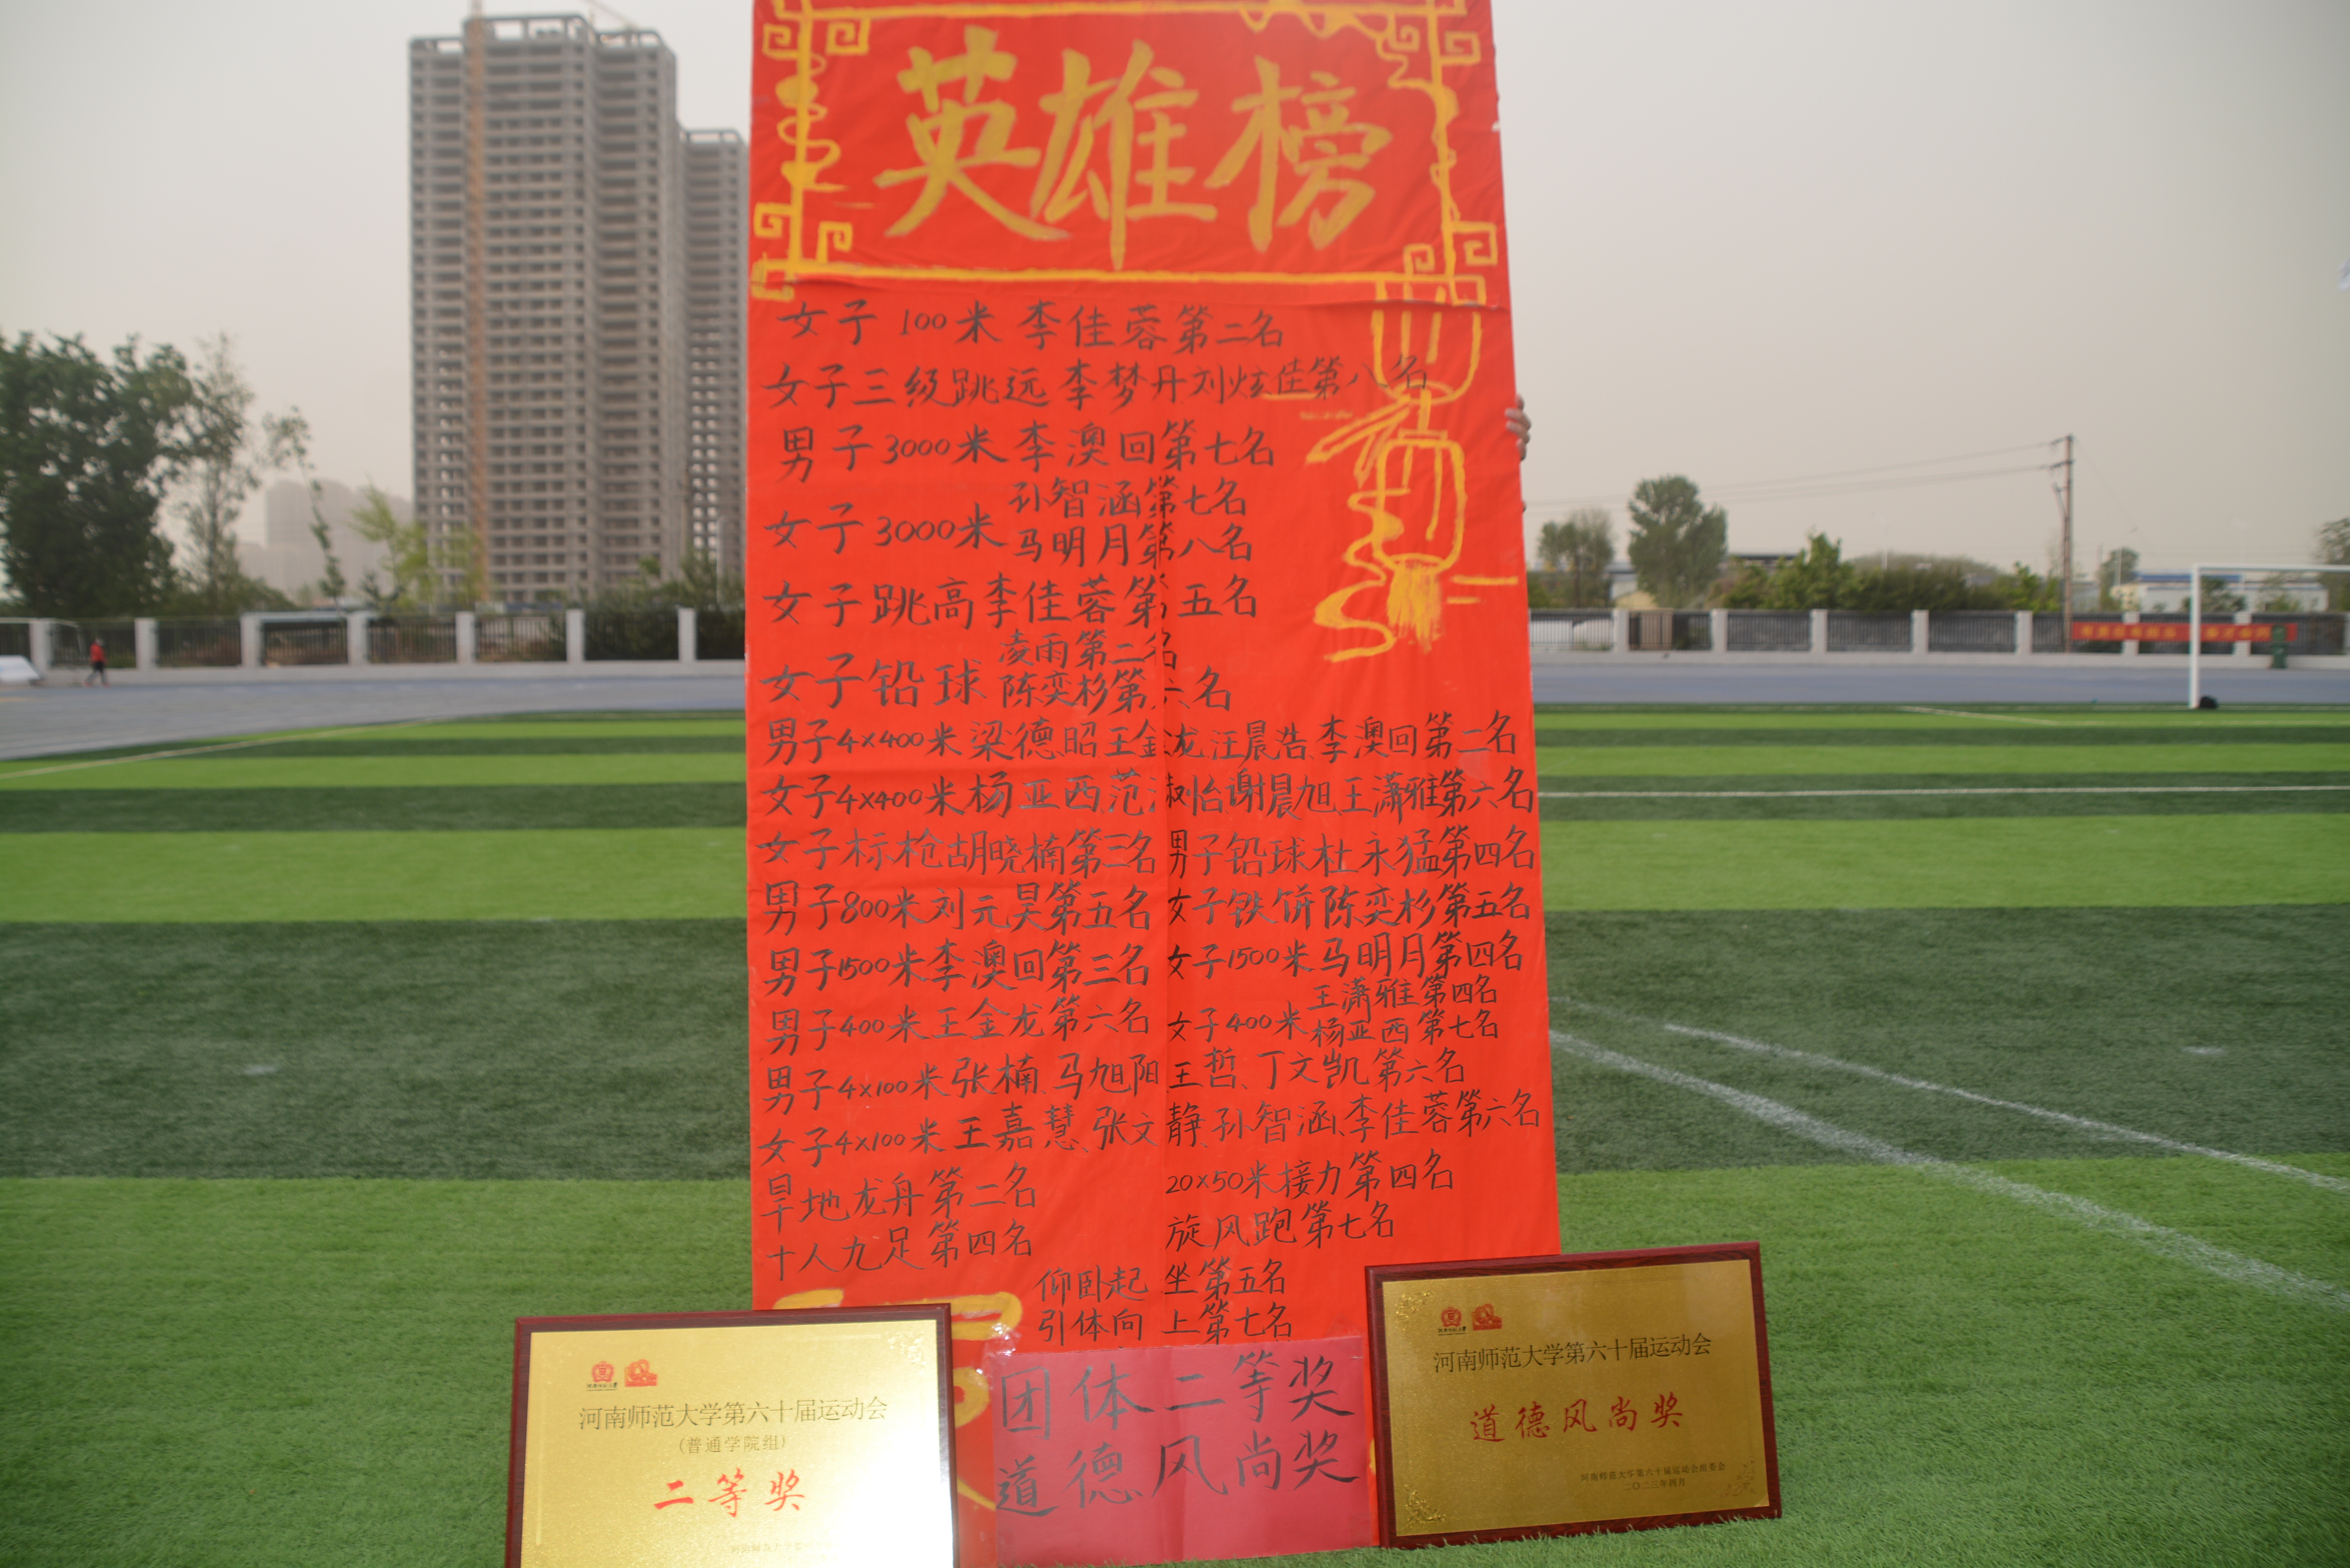 英雄榜
女子100米 李佳蓉第二名
女子三级跳远 李梦丹刘炫佳第八名
男子3000米李澳回第七名
女子3000米 孙智涵第七名
马明月第八名
女子跳高李佳蓉第五名
女子铅球 凌雨第二名
陈奕杉第六名
男子4×400米梁德昭王金龙汪晨浩、李澳回第二名
女子4×400米杨亚西、范淑怡谢晨旭王潇雅第六名
女子标枪胡晓楠第三名 男子铅球杜永猛第四名
男子800米刘元昊第五名 女子铁饼陈奕杉第五名
男子1500米李澳回第三名 女子1500米马明月第四名
男子400米王金龙第六名 女子400米 王潇雅第四名
杨亚西第七名
男子4×100米张楠、马旭阳、王哲、丁文凯第六名
女子4×100米王嘉慧、张文静、孙智涵、李佳蓉第六名
旱地龙舟第二名 20×50米接力第四名
十人九足第四名 旋风跑第七名
仰卧起坐第五名
引体向上第七名
团体二等奖
道德风尚奖
河南师范大学第六十届运动会
(普通学院组)
二等奖
河南师范大学第六十届运动会
道德风尚奖
河南师范大学第六十届运动会组委会
二〇二三年四月